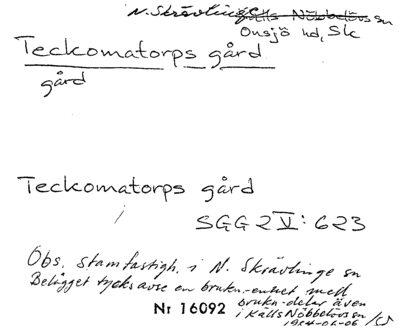 N. Skrävlinge Källs Nöbbelövs sn
Onsjö hd, Sk
Teckomatorps gård
gård
Teckomatorps gård
SGG 2 V: 623
Obs. stamfastigh. i N. Skrävlinge sn
Belägget tycks avse en brukn.-enhet med
brukn.-delar även
Nr 16092
i Källs Nöbbelövs sn
1984-06-06